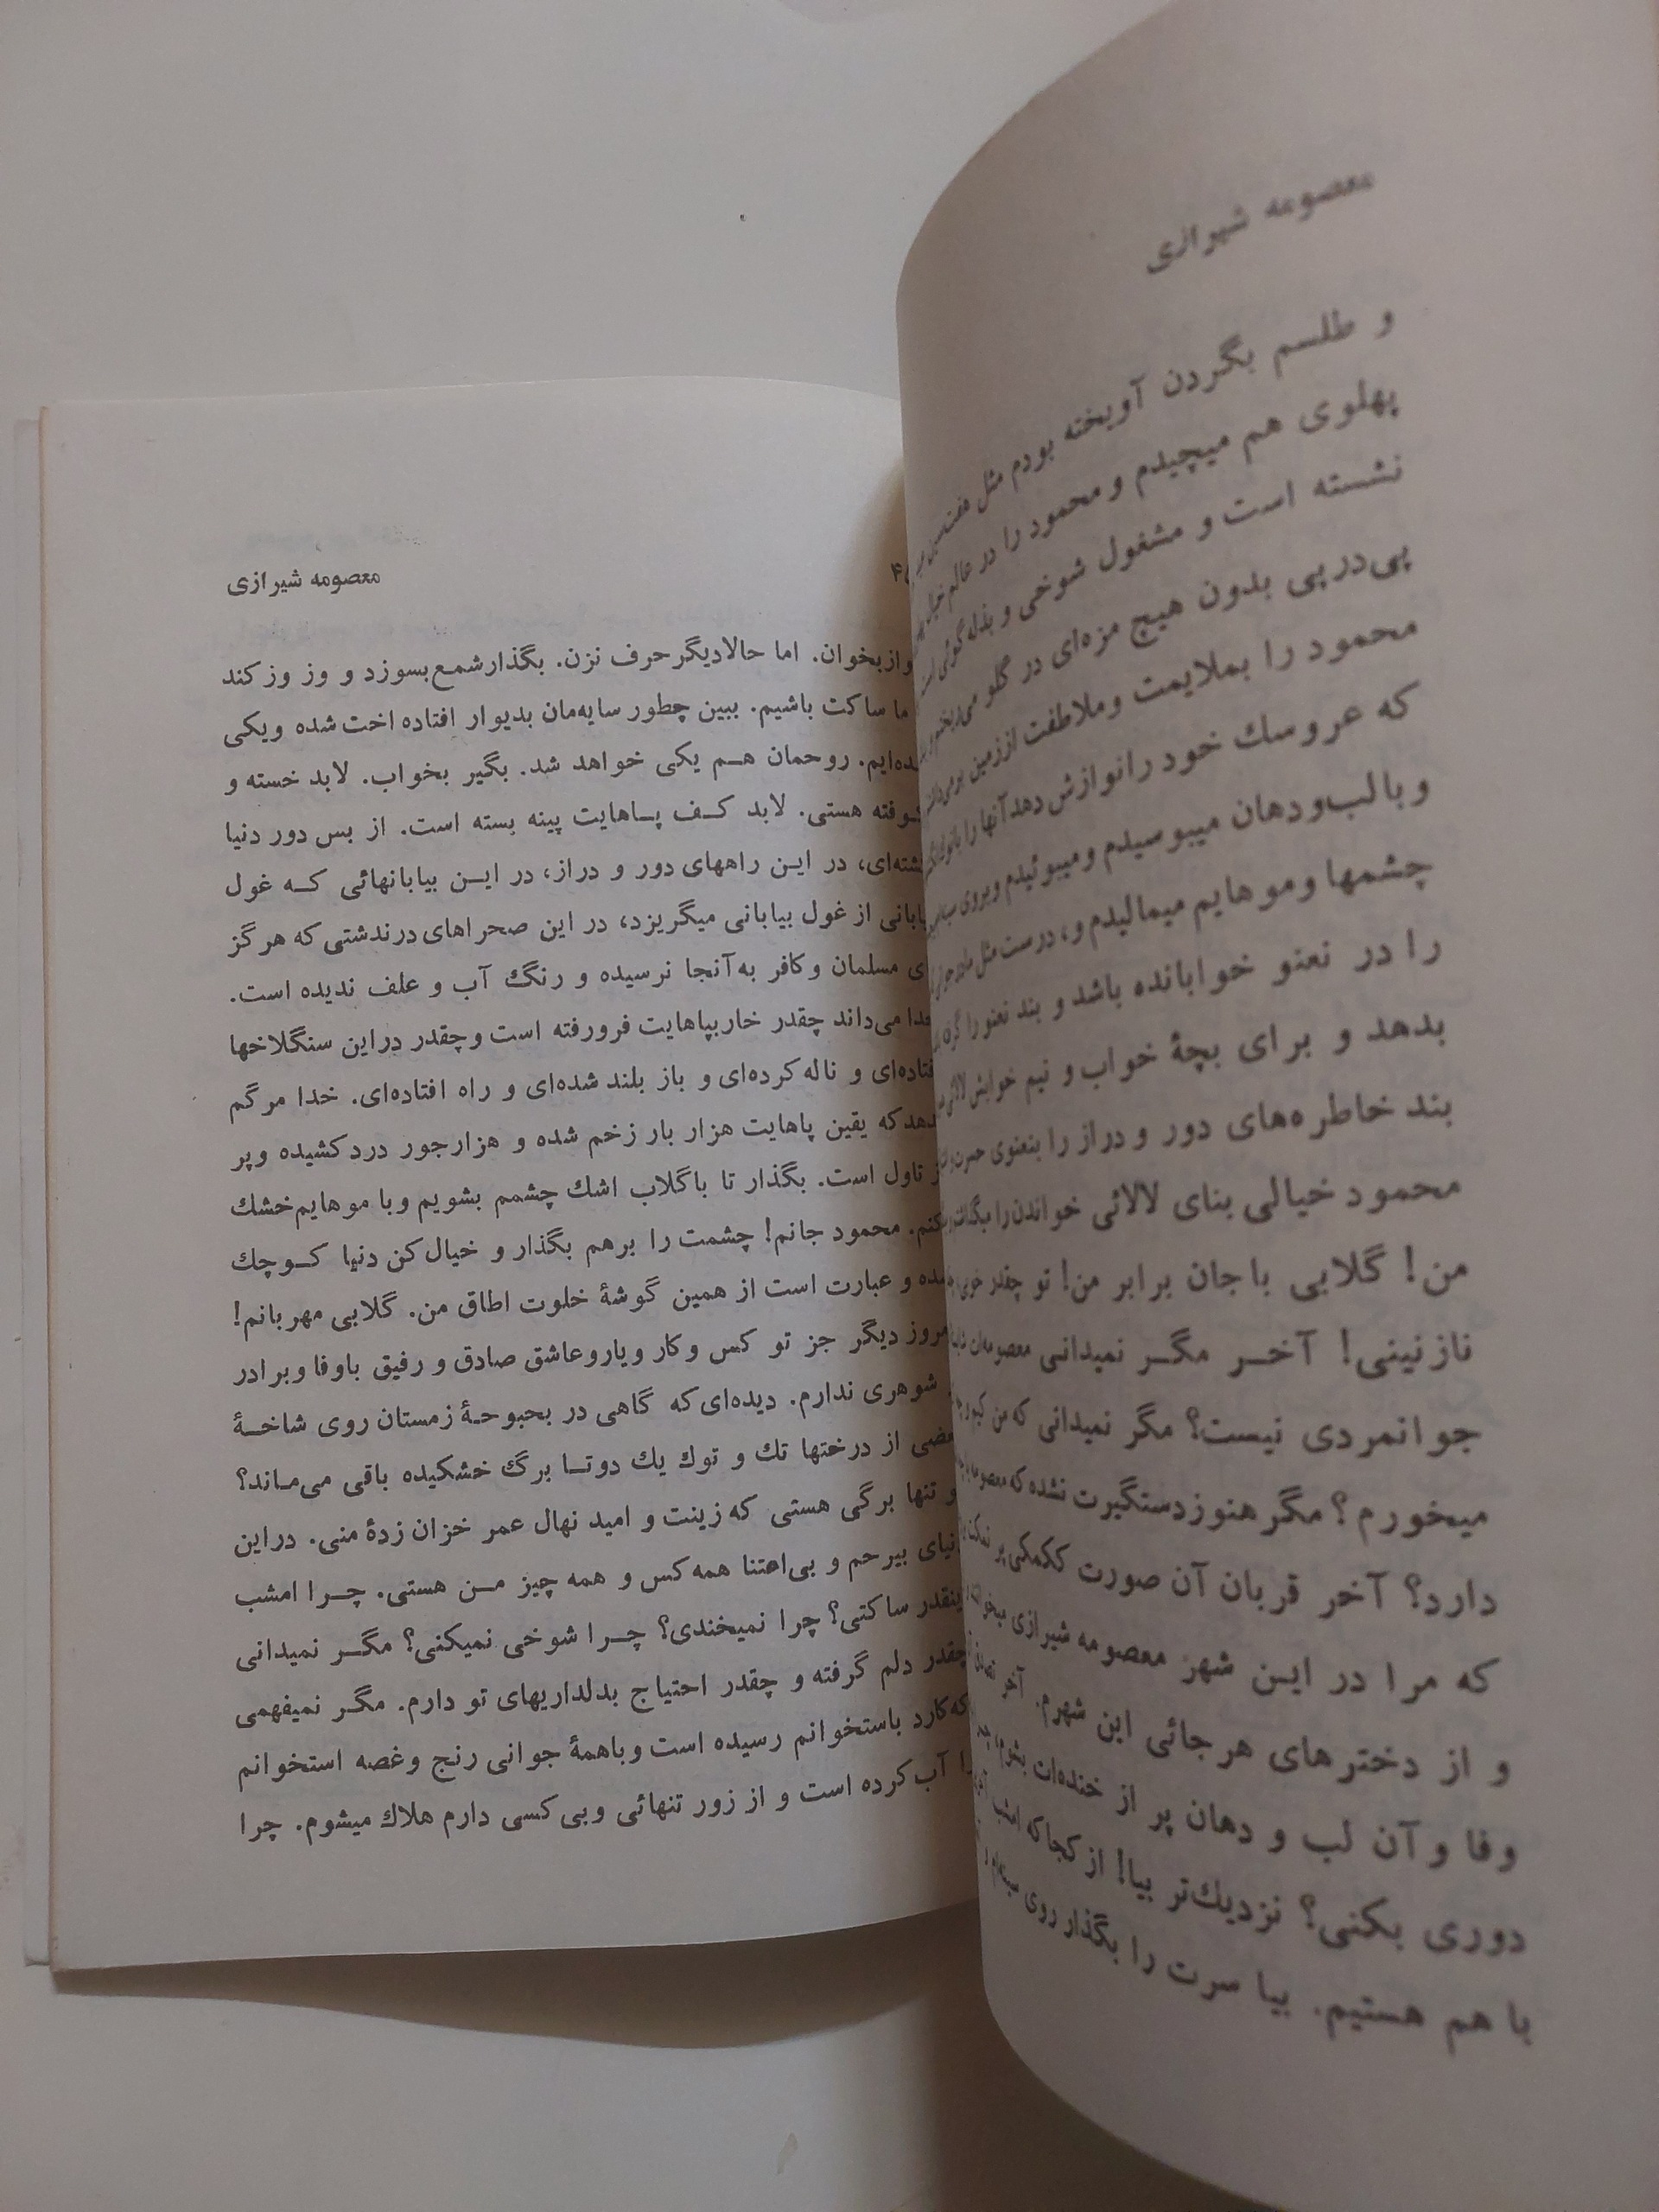 معصومه شیرازی
و طلسم بگردن آویخته بودم مثل هفت‌سین
پهلوی هم میچیدم و محمود را در عالم خیال
نشسته است و مشغول شوخی و بذله‌گوئی است
پی‌در پی بدون هیچ مزه‌ای در گلو می‌ریختم و
محمود را بملایمت و ملاطفت از زمین برمی‌داشتم
که عروسك خود را نوازش دهد آنها را با نوك
و با لب و دهان میبوسیدم و میبوئیدم و بروی
چشمها و موهایم میمالیدم و، درست مثل مادر
را در نعنو خوابانده باشد و بند نعنو را
بدهد و برای بچهٔ خواب و نیم خوابش لالائی
بند خاطره‌های دور و دراز را بنعنوی حسرت
محمود خیالی بنای لالائی خواندن را
من! گلابی با جان برابر من! تو چقدر خوبی
نازنینی! آخـر مگـر نمیدانی معصومه‌ات
جوانمردی نیست؟ مگر نمیدانی که من
میخورم؟ مگر هنوز دستگیرت نشده که معصومه
دارد؟ آخر قربان آن صورت ککمکی پر نمکت
که مرا در ایـن شهر معصومه شیرازی
و از دخترهای هرجائی این شهرم. آخر
وفا و آن لب و دهان پر از خنده‌ات بشوم،
دوری بکنی؟ نزدیك‌تر بیا! از کجا که امشب
با هم هستیم. بیا سرت را بگذار روی
معصومه شیرازی
بخوان. اما حالا دیگر حرف نزن. بگذار شمع بسوزد و وز وز کند
ما ساکت باشیم. ببین چطور سایه‌مان بدیوار افتاده اخت شده و یکی
روحمان هـم یکی خواهد شد. بگیر بخواب. لابد خسته و
هستی. لابد کـف پـاهایت پینه بسته است. از بس دور دنیا
در ایـن راههای دور و دراز، در ایـن بیابانهائی کـه غول
از غول بیابانی میگریزد، در این صحراهای درندشتی که هرگز
مسلمان و کافر به آنجا نرسیده و رنگ آب و علف ندیده است.
می‌داند چقدر خار بپاهایت فرو رفته است و چقدر در این سنگلاخها
و ناله کرده‌ای و باز بلند شده‌ای و راه افتاده‌ای. خدا مرگم
که یقین پاهایت هزار بار زخم شده و هزار جور درد کشیده و پر
تاول است. بگذار تا با گلاب اشك چشمم بشویم و با موهایم خشك
محمود جانم! چشمت را برهم بگذار و خیال کن دنیا کـوچك
و عبارت است از همین گوشهٔ خلوت اطاق من. گلابی مهربانم!
دیگر جز تو کس و کار و یار و عاشق صادق و رفیق باوفا و برادر
شوهری ندارم. دیده‌ای که گاهی در بحبوحـهٔ زمستان روی شاخـهٔ
از درختها تك و توك یك دوتـا برگ خشکیده باقی می‌مـاند؟
تنها برگی هستی که زینت و امید نهال عمر خزان زدهٔ منی. در این
بیرحم و بی‌اعتنا همه کس و همه چیز مـن هستی. چـرا امشب
ساکتی؟ چرا نمیخندی؟ چـرا شوخی نمیکنی؟ مگـر نمیدانی
چقدر دلم گرفته و چقدر احتیاج بدلداریهای تو دارم. مگـر نمیفهمی
که کارد باستخوانم رسیده است و باهمهٔ جوانی رنج و غصه استخوانم
آب کرده است و از زور تنهائی و بی کسی دارم هلاك میشوم. چرا